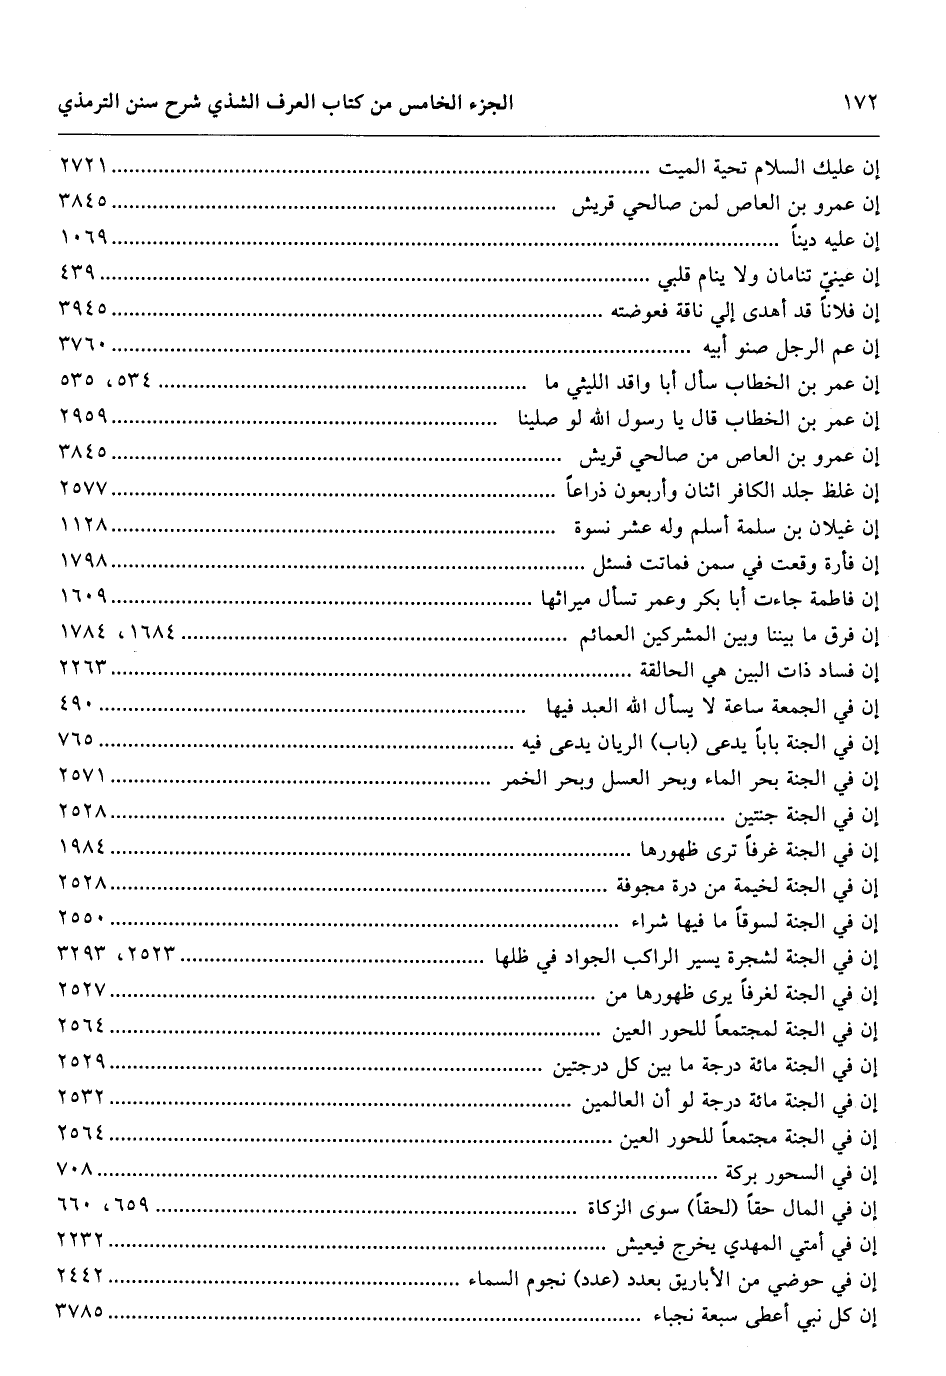 ١٧٢ الجزء الخامس من كتاب العرف الشذي شرح سنن الترمذي
إن عليك السلام تحية الميت ..... ٢٧٢١
إن عمرو بن العاص لمن صالحي قريش ..... ٣٨٤٥
إن عليه ديناً ..... ١٠٦٩
إن عينيّ تنامان ولا ينام قلبي ..... ٤٣٩
إن فلاناً قد أهدى إلي ناقة فعوضته ..... ٣٩٤٥
إن عم الرجل صنو أبيه ..... ٣٧٦٠
إن عمر بن الخطاب سأل أبا واقد الليثي ما ..... ٥٣٤، ٥٣٥
إن عمر بن الخطاب قال يا رسول الله لو صلينا ..... ٢٩٥٩
إن عمرو بن العاص من صالحي قريش ..... ٣٨٤٥
إن غلظ جلد الكافر اثنان وأربعون ذراعاً ..... ٢٥٧٧
إن غيلان بن سلمة أسلم وله عشر نسوة ..... ١١٢٨
إن فأرة وقعت في سمن فماتت فسئل ..... ١٧٩٨
إن فاطمة جاءت أبا بكر وعمر تسأل ميراثها ..... ١٦٠٩
إن فرق ما بيننا وبين المشركين العمائم ..... ١٦٨٤، ١٧٨٤
إن فساد ذات البين هي الحالقة ..... ٢٢٦٣
إن في الجمعة ساعة لا يسأل الله العبد فيها ..... ٤٩٠
إن في الجنة باباً يدعى (باب) الريان يدعى فيه ..... ٧٦٥
إن في الجنة بحر الماء وبحر العسل وبحر الخمر ..... ٢٥٧١
إن في الجنة جنتين ..... ٢٥٢٨
إن في الجنة غرفاً ترى ظهورها ..... ١٩٨٤
إن في الجنة لخيمة من درة مجوفة ..... ٢٥٢٨
إن في الجنة لسوقاً ما فيها شراء ..... ٢٥٥٠
إن في الجنة لشجرة يسير الراكب الجواد في ظلها ..... ٢٥٢٣، ٣٢٩٣
إن في الجنة لغرفاً يرى ظهورها من ..... ٢٥٢٧
إن في الجنة لمجتمعاً للحور العين ..... ٢٥٦٤
إن في الجنة مائة درجة ما بين كل درجتين ..... ٢٥٢٩
إن في الجنة مائة درجة لو أن العالمين ..... ٢٥٣٢
إن في الجنة مجتمعاً للحور العين ..... ٢٥٦٤
إن في السحور بركة ..... ٧٠٨
إن في المال حقاً (لحقاً) سوى الزكاة ..... ٦٥٩، ٦٦٠
إن في أمتي المهدي يخرج فيعيش ..... ٢٢٣٢
إن في حوضي من الأباريق بعدد (عدد) نجوم السماء ..... ٢٤٤٢
إن كل نبي أعطى سبعة نجباء ..... ٣٧٨٥